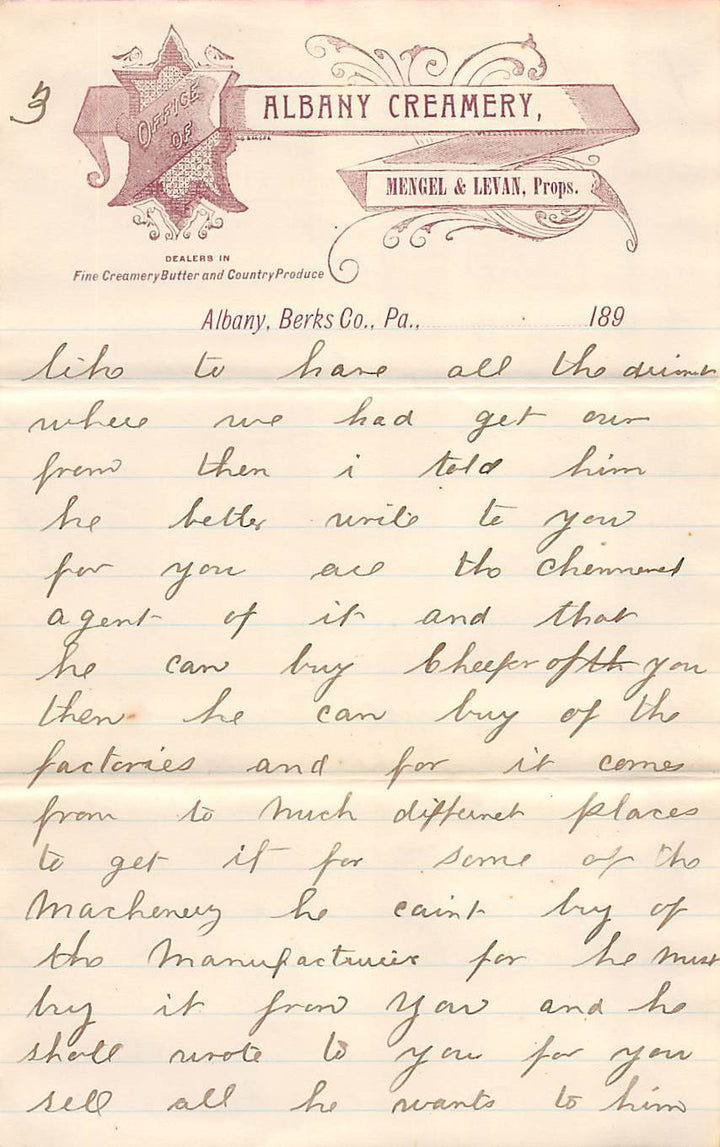 3
OFFICE
OF
ALBANY CREAMERY,
MENGEL & LEVAN, Props.
DEALERS IN
Fine Creamery Butter and Country Produce
Albany, Berks Co., Pa., 189
like to have all the
where we had get our
from then i told him
he better write to you
for you are the
agent of it and that
he can buy Cheeper of th you
then he can buy of the
factories and for it comes
from to much differnet places
to get it for some of the
Machenery he caint buy of
the for he must
buy it from you and he
shall wrote to you for you
sell all he wants to him